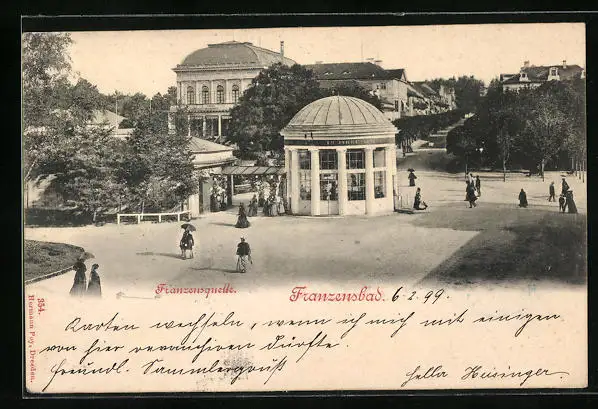 Franzensquelle.
Franzensbad. 6·2·99.
354.
Hermann Poy, Dresden.
Karten wechseln, wenn ich mich mit einigen
von hier revanchiren dürfte.
freundl. Sammlergruß
Hella Heisinger,